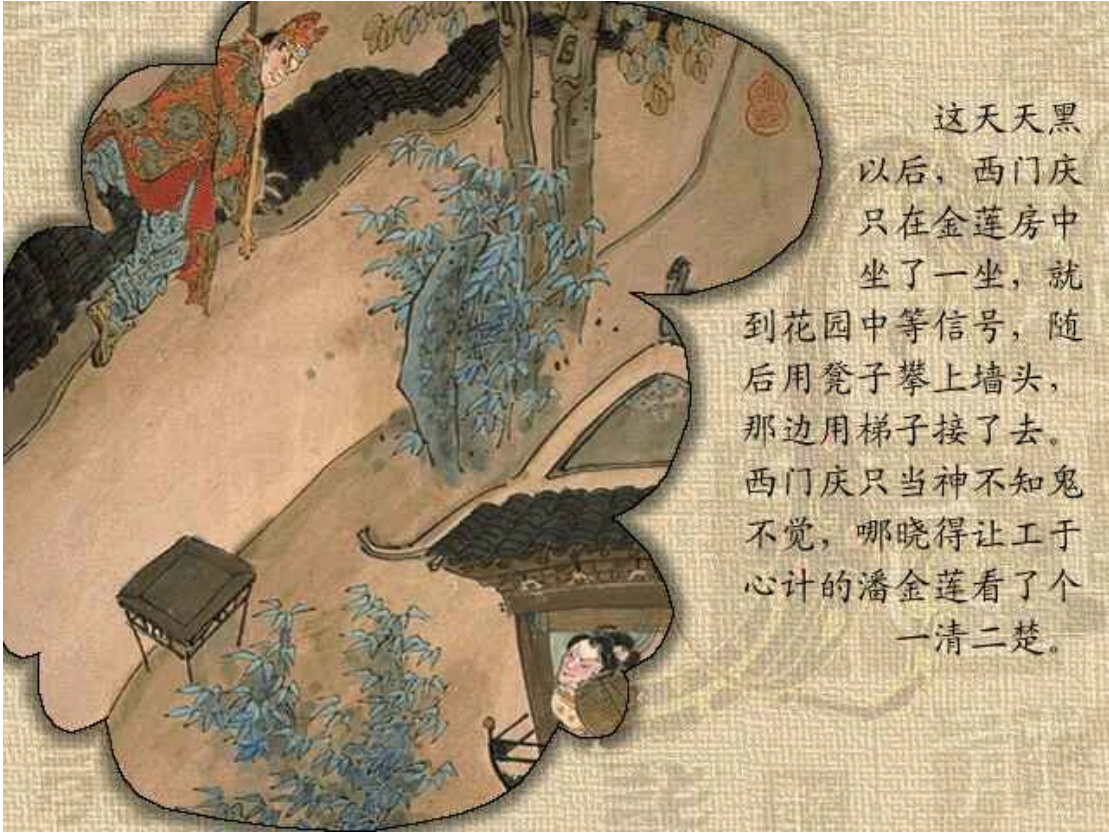 这天天黑
以后，西门庆
只在金莲房中
坐了一坐，就
到花园中等信号，随
后用凳子攀上墙头，
那边用梯子接了去。
西门庆只当神不知鬼
不觉，哪晓得让工于
心计的潘金莲看了个
一清二楚。